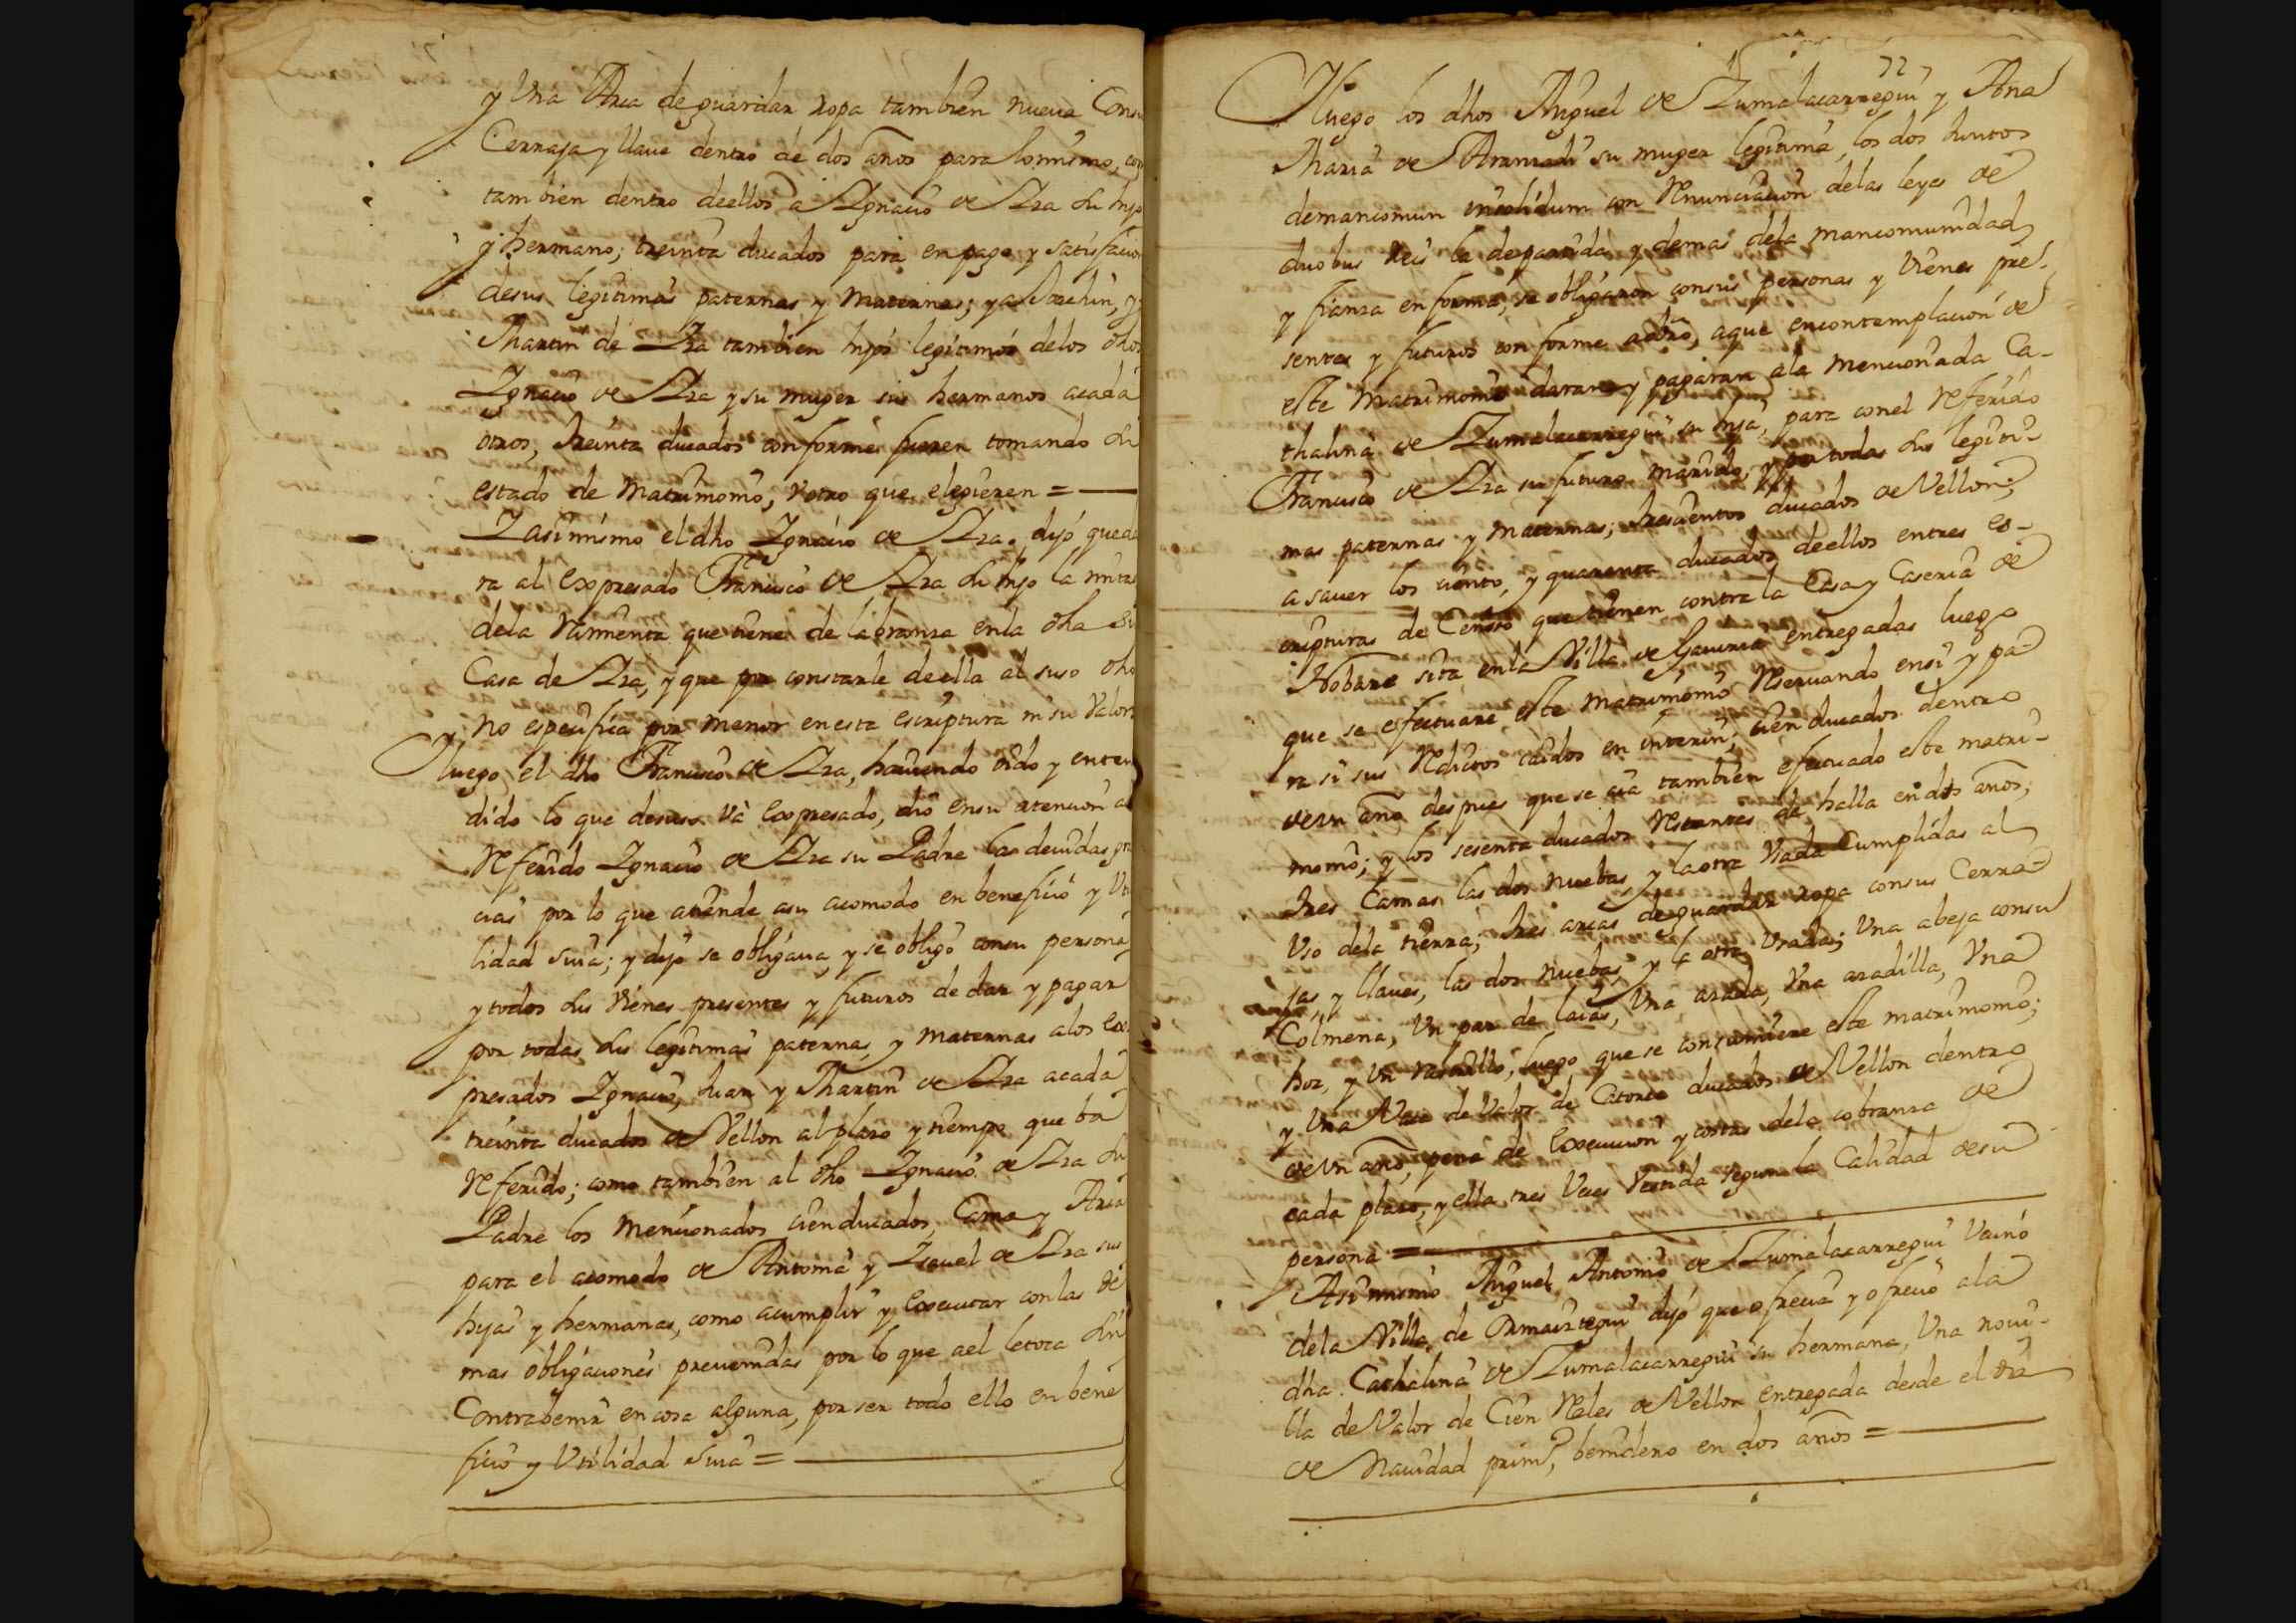 y Una Arca deguardar ropa tambien nueua Consu
Cerraja y llaue dentro de dos años para lo mismo, con
tambien dentro deellos a Ygnacio de Yza su hijo
y hermano; treinta ducados para en pago y satisfacion
desus legitimas paternas y maternas; y a Joachin, y
Martin de Yza tambien hijos legitimos delos dhos
Ygnacio de Yza y su muger sus hermanos acada
otros, treinta ducados conforme fueren tomando su
estado de Matrimonio, v otro que elegieren =
Yasimismo el dho Ygnacio de Yza dijo queda
ra al expresado Francisco de Yza su hijo la mitad
dela Vazmenta que tiene de labranza enla dha su
Casa de Yza, y que por constarle deella al suso dho
no especifica por menor enesta escriptura ni su Valor
Y luego el dho Francisco de Yza, hauiendo oido y enten
dido lo que desuso Và expresado, dio ensu atencion al
Referido Ygnacio de Yza su Padre las deuidas gra
cias por lo que atiende asu acomodo en beneficio y Vti
lidad suia; y dijo se obligaua, y se obligò consu persona
y todos sus Vienes presentes y futuros de dar y pagar
por todas sus legitimas paternas y maternas alos ex
presados Ygnacio, Juan y Martin de Yza acada
treinta ducados de Vellon al plazo y tiempo que ba
Referido; como tambien al dho Ygnacio de Yza su
Padre los mencionados cien ducados, Cama y Arca
para el acomodo de Antonia y Ysauel de Yza sus
hijas y hermanas, como acumplir y executar con las de
mas obligaciones preuenidas por lo que ael letoca sin
Contrabenir en cosa alguna, por ser todo ello en bene
ficio y Utilidad Suia =
72
Y luego los dhos Miguel de Zumalacarregui y Ana
Maria de Aranzadi su muger legitima, los dos juntos
demancomun insolidum con Renunciacion delas leyes de
duobus Reis la departida y demas dela mancomunidad
y fianza en forma, se obligaron consus personas y Vienes pre-
sentes y futuros conforme adro, aque encontemplacion de
este Matrimonio daran y pagaran ala mencionada Ca-
thalina de Zumalacarregui su hija, para conel Referido
Francisco de Yza su futuro marido, y por todas sus legiti-
mas paternas y maternas; trescientos ducados de Vellon;
a sauer los ciento, y quarenta ducados deellos entres es-
cripturas de Censso que tienen contra la Casa y Caseria de
Nobare sita enla Villa de Gauiria entregadas luego
que se efectuare este matrimonio Reseruando ensi y pa-
ra si sus Reditos caidos en interin; cien ducados dentro
deun año despues que se aia tambien efectuado este matri-
monio; y los sesenta ducados Restantes de halla endos años;
tres Camas las dos nuebas y la otra Vsada Cumplidas al
Vso dela tierra; tres arcas deguardar ropa consus Cerra-
jas y llaues, las dos nuebas y la otra Vsada; Una abeja consu
Colmena, Un par de laias, Una azada, Una azadilla, Una
hoz, y Un Rastrillo, luego que se consumiere este matrimonio;
y Una Vaca de Valor de Catorce ducados de Vellon dentro
deun año, pena de execucion y costas dela cobranza de
cada plazo, y ella tres Veces Vestida segun la Calidad desu
persona =
Asimismo Miguel Antonio de Zumalacarregui Vecino
dela Villa de Ormaiztegui dijo que ofrecia y ofrecio ala
dha Cathalina de Zumalacarregui su hermana, Una noui-
lla de Valor de Cien Reles de Vellon entregada desde el dia
de Nauidad prim, benidero en dos años =